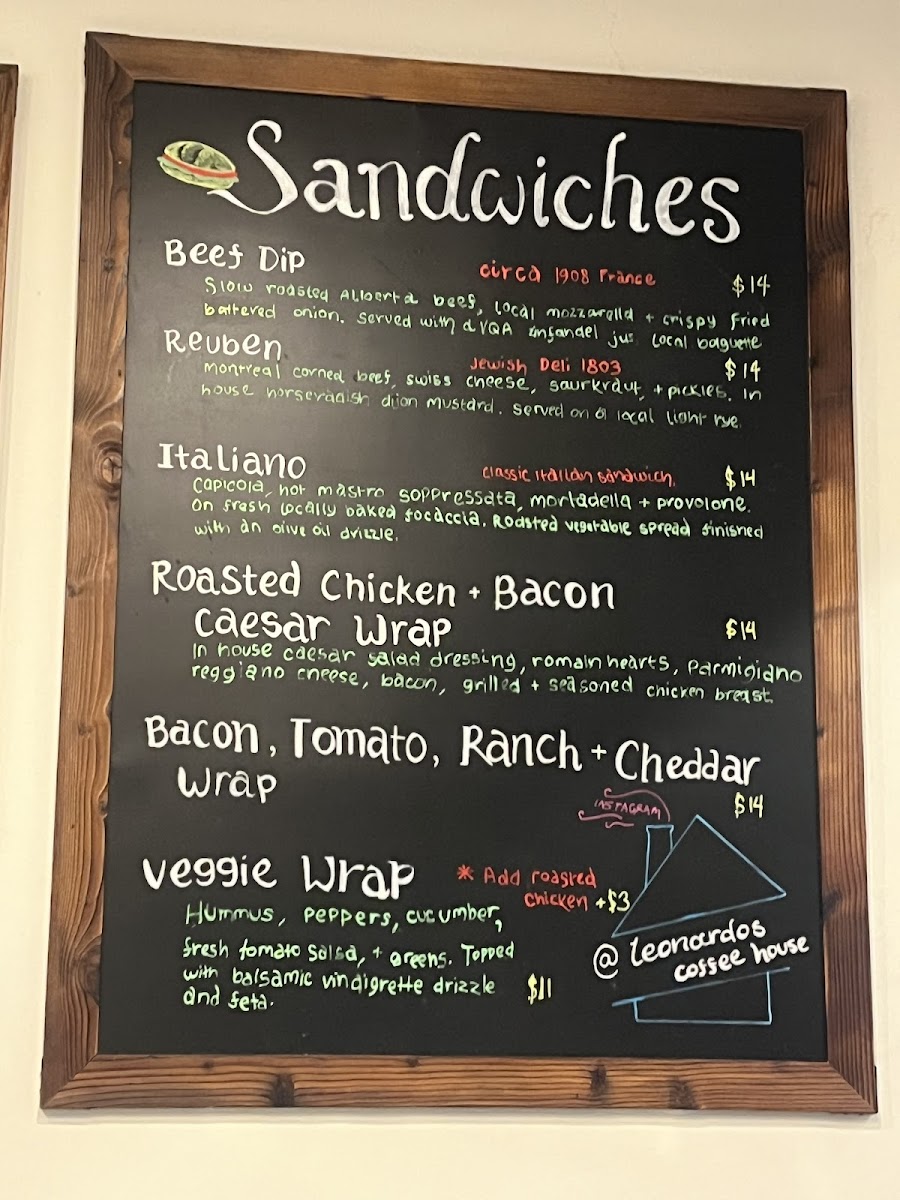 Sandwiches
Beef Dip circa 1908 France $14
Slow roasted Alberta beef, local mozzarella + crispy fried
battered onion. Served with a VQA zinfandel jus local baguette
Reuben Jewish Deli 1803 $14
montreal corned beef, swiss cheese, saurkraut, + pickles. In
house horseradish dijon mustard. Served on a local light rye.
Italiano classic italian sandwich. $14
capicola, hot mastro soppressata, mortadella + provolone.
On fresh locally baked focaccia. Roasted vegetable spread finished
with an olive oil drizzle.
Roasted Chicken + Bacon
Caesar Wrap $14
In house caesar salad dressing, romain hearts, Parmigiano
reggiano cheese, bacon, grilled + seasoned chicken breast
Bacon, Tomato, Ranch + Cheddar
Wrap $14
INSTAGRAM
Veggie Wrap * Add roasted
chicken +$3
Hummus, peppers, cucumber,
fresh tomato salsa, + greens. Topped
with balsamic vinaigrette drizzle $11
and feta.
@ leonardos
coffee house